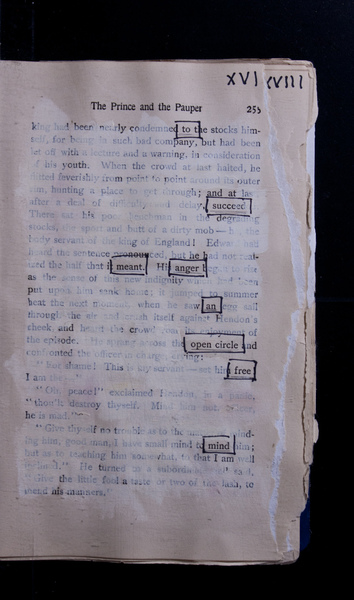 XVI XVIII
The Prince and the Pauper 255
king had been nearly condemned to the stocks him-
self, for being in such bad company, but had been
let off with a lecture and a warning, in consideration
of his youth. When the crowd at last halted, he
flitted feverishly from point to point around its outer
rim, hunting a place to get through; and at last
after a deal of difficulty and delay, succeed
There sat his poor henchman in the degrading
stocks, the sport and butt of a dirty mob — he, the
body servant of the king of England! Edward had
heard the sentence pronounced, but he had not real-
ized the half that it meant. His anger to rise
as the sense of this new indignity which had been
put upon him sank home; it jumped to summer
heat the next moment, when he saw an egg sail
through the air and crush itself against Hendon's
cheek, and heard the crowd roar its enjoyment of
the episode. He sprang across the open circle and
confronted the officer in charge, crying:
"For shame! This is my servant — set him free
I am the
"Oh, peace!" exclaimed Hendon, in a panic,
"thou'lt destroy thyself. Mind him not,
he is mad."
"Give thyself no trouble as to the
ing him, good man, I have small mind to mind him;
but as to teaching him somewhat, to that I am well
inclined." He turned to a subordinate and said,
"Give the little fool a taste or two of the lash, to
mend his manners."